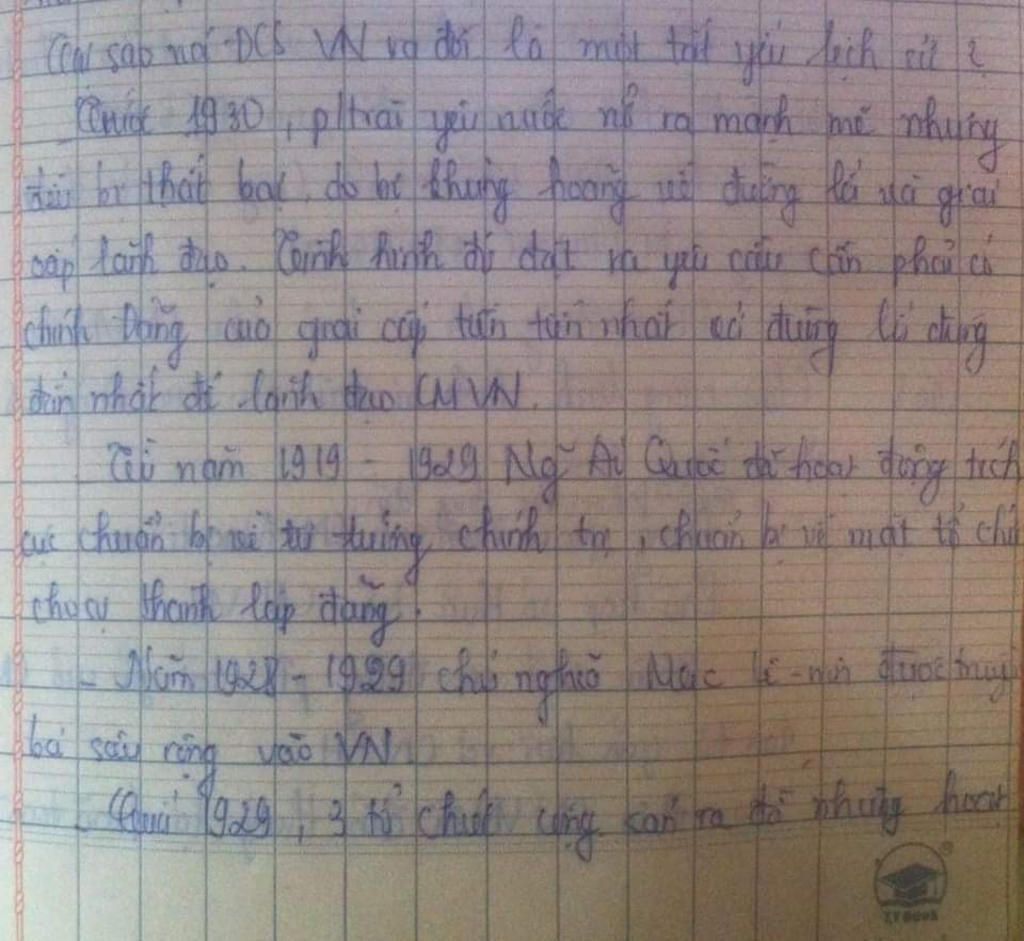 Tại sao nói ĐCS VN ra đời là một tất yếu lịch sử ?
Trước 1930, p/trào yêu nước nổ ra mạnh mẽ nhưng
đều bị thất bại do bị khủng hoảng về đường lối và giai
cấp lãnh đạo. Tình hình đó đặt ra yêu cầu cần phải có
chính Đảng của giai cấp tiên tiến nhất có đường lối đúng
đắn nhất để lãnh đạo CMVN.
Từ năm 1919 - 1929 Ng~ Ái Quốc đã hoạt động tích
cực chuẩn bị về tư tưởng chính trị, chuẩn bị về mặt tổ chứ
cho sự thành lập đảng.
- Năm 1928 - 1929 chủ nghĩa Mác Lê-nin được truyề
bá sâu rộng vào VN
- Cuối 1929, 3 tổ chức cộng sản ra đời nhưng hoạt